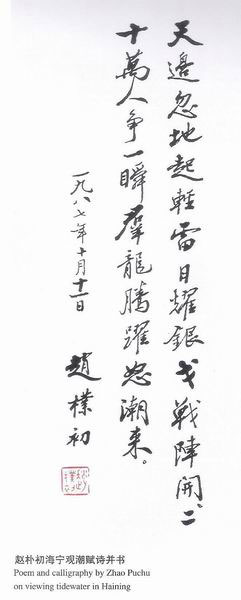 天邊忽地起輕雷日耀銀戈戰陣開、二
十萬人争一瞬羣龍騰躍怒潮来。
一九八七年十月十一日
趙樸初
赵朴初海宁观潮赋诗并书
Poem and calligraphy by Zhao Puchu
on viewing tidewater in Haining